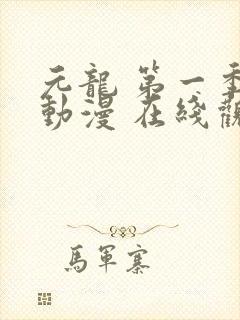 元龍 第一季
動漫 在綫觀
馬軍寨